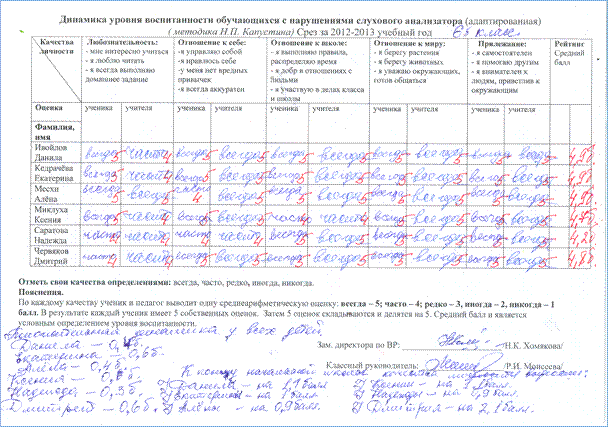 Динамика уровня воспитанности обучающихся с нарушениями слухового анализатора (адаптированная)
( методика Н.П. Капустина) Срез за 2012-2013 учебный год 6Б класс
Качества личности Любознательность: - мне интересно учиться - я люблю читать - я всегда выполняю домашнее задание Отношение к себе: -я управляю собой -я нравлюсь себе -у меня нет вредных привычек -я всегда аккуратен Отношение к школе: - я выполняю правила, распределяю время - я добр в отношениях с людьми - я участвую в делах класса и школы Отношение к миру: - я берегу растения - я берегу животных - я уважаю окружающих, готов общаться Прилежание: - я самостоятелен - я помогаю другим - я внимателен к людям, приветлив к окружающим Рейтинг Средний балл
Оценка ученика учителя ученика учителя ученика учителя ученика учителя ученика учителя
Фамилия, имя
Ивойдов Данила всегда 5 часто 4 всегда 5 всегда 5 всегда 5 всегда 5 всегда 5 всегда 5 всегда 5 всегда 5
Кедрачёва Екатерина всегда 5 часто 4 всегда 5 всегда 5 всегда 5 всегда 5 всегда 5 всегда 5 всегда 5 всегда 5
Месхи Алёна всегда 5 всегда 5 часто 4 всегда 5 всегда 5 всегда 5 всегда 5 всегда 5 всегда 5 всегда 5
Миклуха Ксения всегда 5 часто 4 всегда 5 всегда 5 часто всегда 5 всегда 5 всегда 5 всегда 5
Саратова Надежда часто 4 часто 4 часто 4 часто 4 всегда 5 всегда 5 всегда 5
Червяков Дмитрий часто 4 часто 4 всегда 5 всегда 5 всегда 5 всегда 5 всегда 5 всегда 5 всегда 5
Отметь свои качества определениями: всегда, часто, редко, иногда, никогда.
Пояснения.
По каждому качеству ученик и педагог выводит одну среднеарифметическую оценку: всегда – 5; часто – 4; редко – 3, иногда – 2, никогда – 1
балл. В результате каждый ученик имеет 5 собственных оценок. Затем 5 оценок складываются и делятся на 5. Средний балл и является
условным определением уровня воспитанности.
Положительная динамика у всех детей
Данила –
Зам. директора по ВР: /Н.К. Хомякова/
Екатерина – 0,6б.
Алёна – 0,4б.
Классный руководитель: /Р.И. Моисеева/
Ксения –
К концу начальной школы качества личности
Надежда – 0,3б. 1) Данила – на 1,1 балл 5) Ксении – на
2) Екатерина – на 1 балл. Надежды – на 0,9 балл.
Дмитрий – 0,6б. 3) Алёне – на 0,9 балл. Дмитрия – на 2,1 балл.